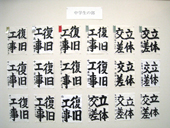 中学生の部
立体
交差
立体
交差
復旧
工事
復旧
工事
復旧
工事
復旧
工事
立体
交差
立体
交差
復旧
工事
復旧
工事
復旧
工事
復旧
工事
立体
交差
立体
交差
立体
交差
復旧
工事
復旧
工事
復旧
工事